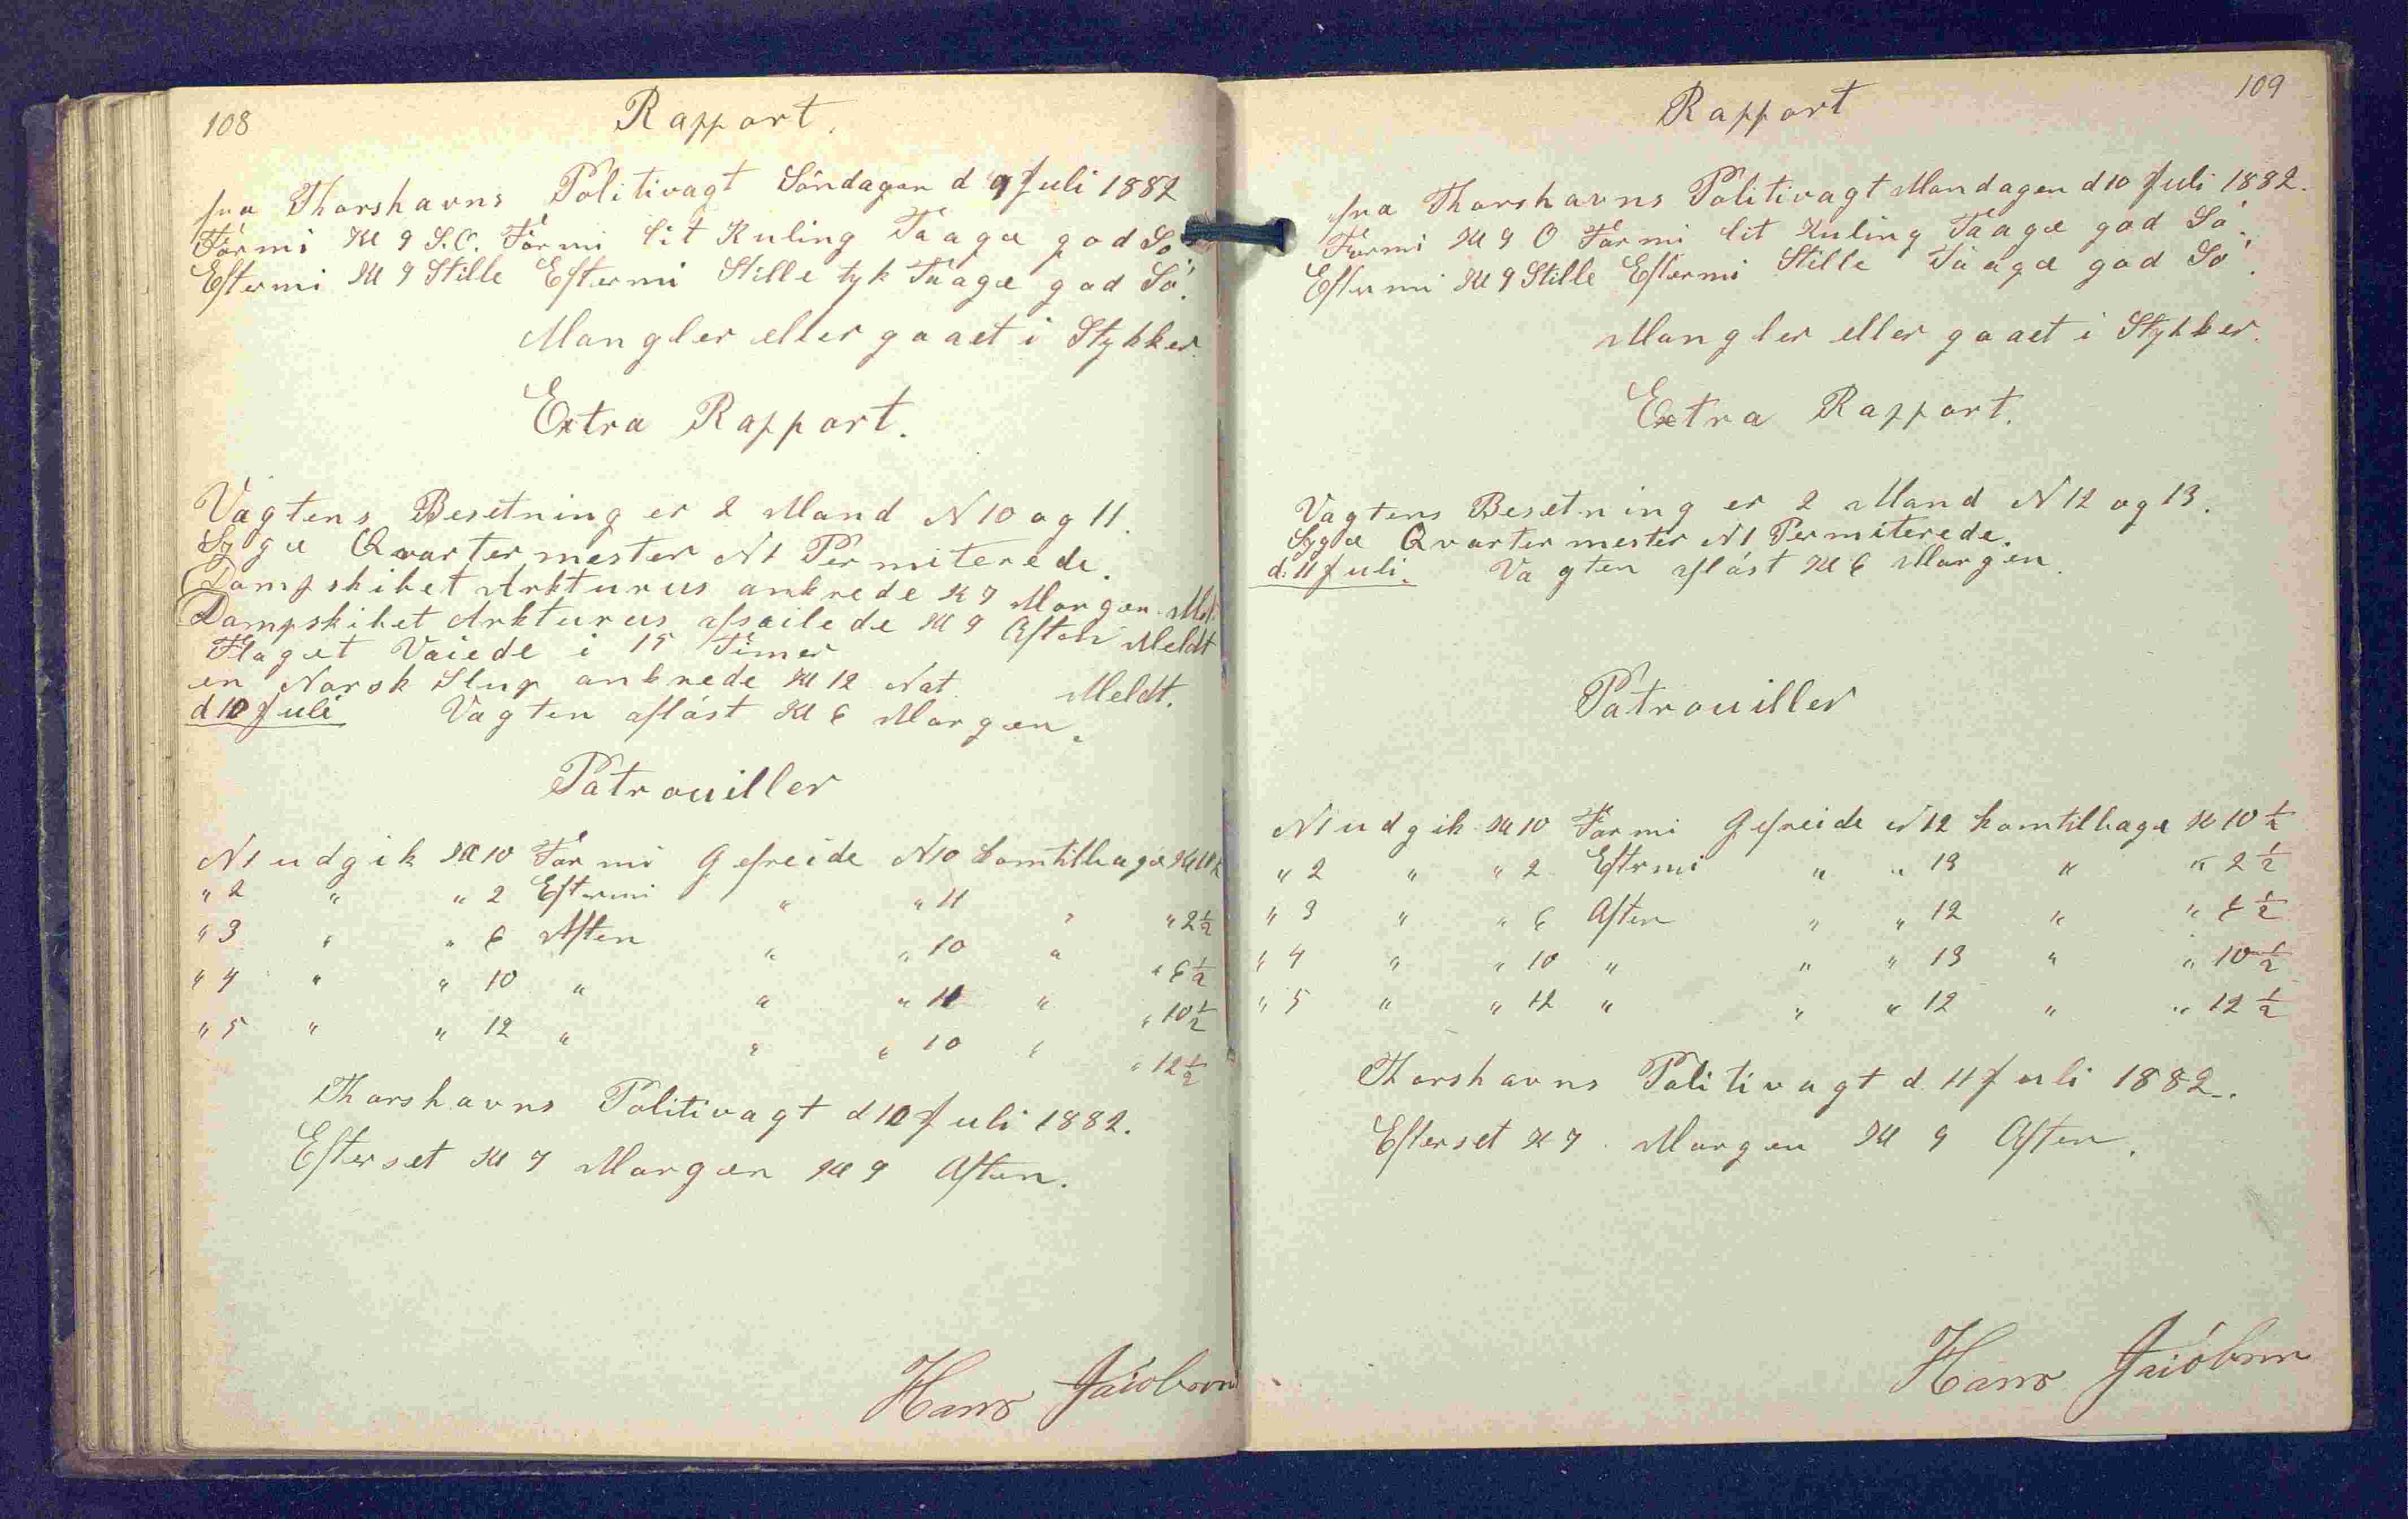 108
Rapport.
fra Thorshavns Politivagt Söndagen d 9 Juli 1882
Förmi Kl 9 S.O. Förmi lit Kuling Taage god Sö
Eftermi Kl 9 Stille Eftermi Stille tyk Taage god Sö.
Mangler eller gaaet i Stykker.
Extra Rapport.
Vagtens Besetning er 2 Mand N 10 og 11.
Syge Qvartermester N1 Permiterede.
Dampskibet Arkturus ankrede Kl 7 Morgen.
Dampskibet Arkturus afseilede Kl 9 Aften Meldt
Flaget Vaiede i 15 Timer
en Norsk Slup ankrede Kl 12 Nat. Meldt.
d 10 Juli Vagten aflöst Kl 6 Morgen.
Patrouiller
N1 udgik Kl 10 För mi Gefreide N10 komtilbage Kl
" 2 " " 2 Eftermi " " 11 " " 2 1/2
" 3 " " 6 Aften " " 10 " " 6 1/2
" 4 " " 10 " " " 11 " " 10 1/2
" 5 " " 12 " " " 10 " " 12 1/2
Thorshavns Politivagt d 10 Juli 1882.
Efterset Kl 7 Morgen Kl 9 Aften.
Hans Jacobsen
109
Rapport
fra Thorshavns Politivagt Mandagen d 10 Juli 1882.
Förmi Kl 9 O Förmi lit Kuling Taage god Sö.
Eftermi Kl 9 Stille Eftermi Stille Taage god Sö.
Mangler eller gaaet i Stykker.
Extra Rapport.
Vagtens Besetning er 2 Mand N 12 og 13.
Syge Qvartermester N1 Permiterede.
d: 11 Juli. Vagten aflöst Kl 6 Morgen.
Patrouiller
N1 udgik Kl 10 Förmi Gefreide N12 komtilbage Kl 10 1/2
" 2 " " 2 Eftrmi " " 13 " " 2 1/2
" 3 " " 6 Aften " " 12 " " 6 1/2
" 4 " " 10 " " " 13 " " 10 1/2
" 5 " " 12 " " " 12 " " 12 1/2
Thorshavns Politivagt d. 11 Juli 1882.
Efterset Kl 7 Morgen Kl 9 Aften.
Hans Jacobsen